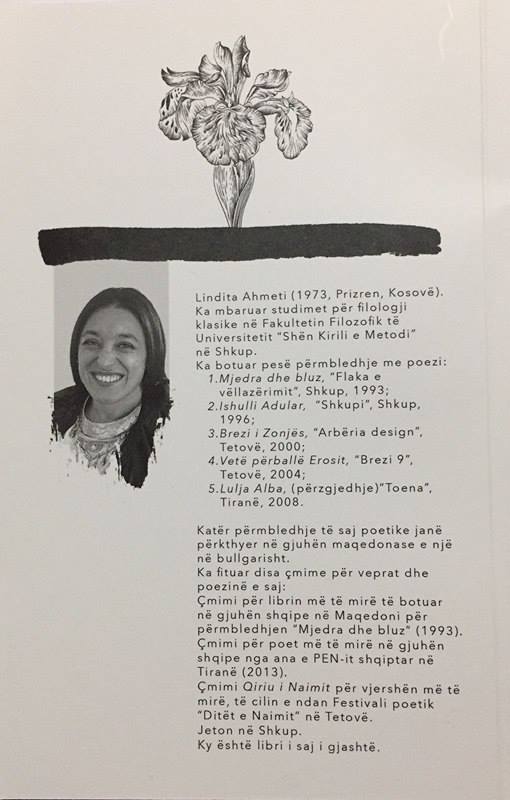 Lindita Ahmeti (1973, Prizren, Kosovë).
Ka mbaruar studimet për filologji
klasike në Fakultetin Filozofik të
Universitetit “Shën Kirili e Metodi”
në Shkup.
Ka botuar pesë përmbledhje me poezi:
1.Mjedra dhe bluz, “Flaka e
vëllazërimit”, Shkup, 1993;
2.Ishulli Adular, “Shkupi”, Shkup,
1996;
3.Brezi i Zonjës, “Arbëria design”,
Tetovë, 2000;
4.Vetë përballë Erosit, “Brezi 9”,
Tetovë, 2004;
5.Lulja Alba, (përzgjedhje)“Toena”,
Tiranë, 2008.
Katër përmbledhje të saj poetike janë
përkthyer në gjuhën maqedonase e një
në bullgarisht.
Ka fituar disa çmime për veprat dhe
poezinë e saj:
Çmimi për librin më të mirë të botuar
në gjuhën shqipe në Maqedoni për
përmbledhjen “Mjedra dhe bluz” (1993).
Çmimi për poet më të mirë në gjuhën
shqipe nga ana e PEN-it shqiptar në
Tiranë (2013).
Çmimi Qiriu i Naimit për vjershën më të
mirë, të cilin e ndan Festivali poetik
“Ditët e Naimit” në Tetovë.
Jeton në Shkup.
Ky është libri i saj i gjashtë.